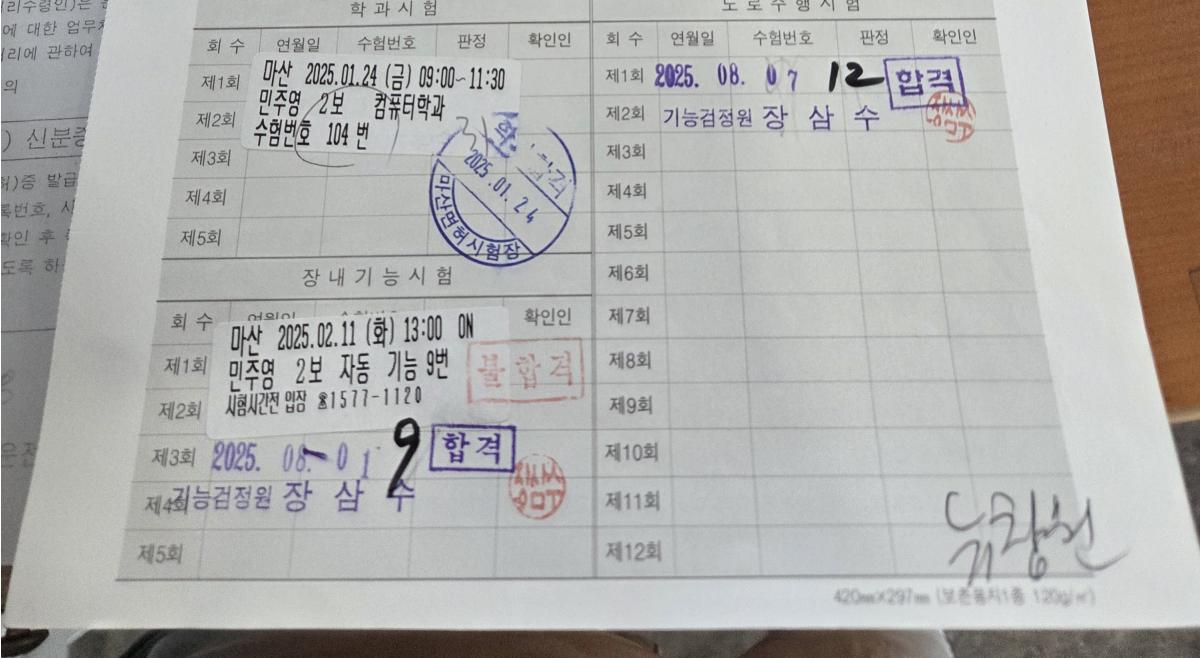 리수령인)은
에 대한 업무처
리에 관하여
의
) 신분증
허)증 발급
록번호,
확인 후
도록 하
학과시험
회 수 연월일 수험번호 판정 확인인
제1회 마산 2025.01.24 (금) 09:00~11:30
민주영 2보 컴퓨터학과
제2회
수험번호 104 번
제3회
제4회
제5회
2025.01.24
마산면허시험장
장내기능시험
회 수 확인인
마산 2025.02.11 (화) 13:00 ON
제1회 민주영 2보 자동 기능 9번
불합격
시험시간전 입장 ☎1577-1120
제2회
제3회 2025. 08. 01 9 합격
제4회 기능검정원 장삼수
제5회
도로주행시험
회 수 연월일 수험번호 판정 확인인
제1회 2025. 08. 07 12 합격
제2회 기능검정원 장삼수
제3회
제4회
제5회
제6회
제7회
제8회
제9회
제10회
제11회
제12회
420㎜×297㎜ (보존용지1종 120g/㎡)